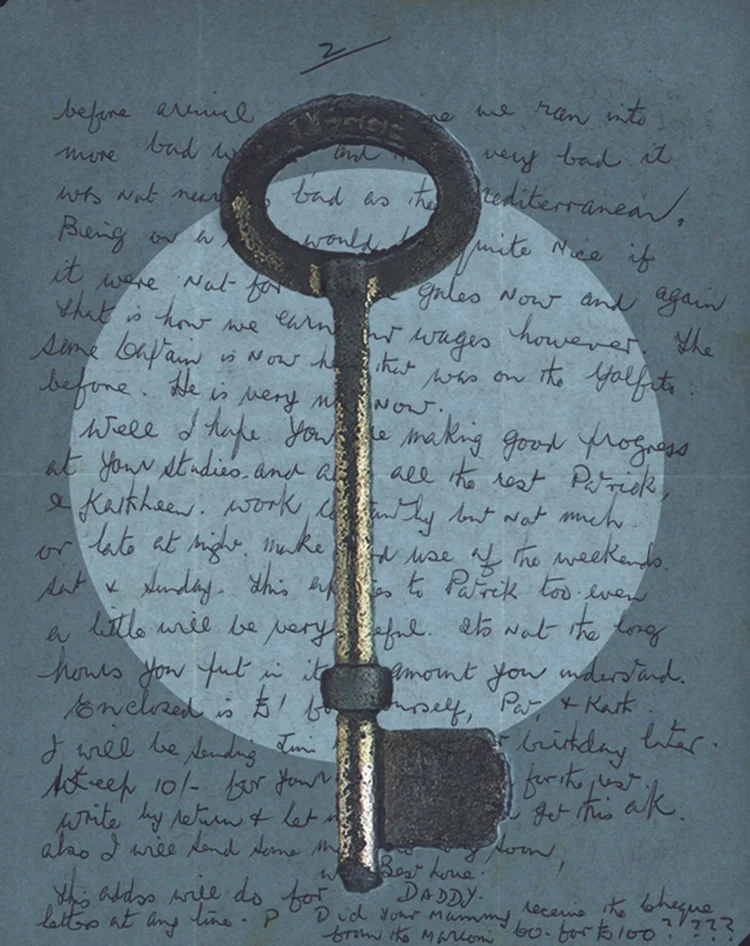 2
before arrival we ran into
more bad and very bad it
was not near bad as the Mediterranean,
Being on a would quite nice if
it were not for Gales now and again
That is how we earn our wages however. The
same Captain is now that was on the
before. He is very now.
Well I hope you making good progress
at your studies. and all the rest Patrick,
& Kathleen. work but not much
or late at night. make use of the weekends.
Sat & Sunday. This to Patrick too. even
a little will be very. Its not the long
hours you put in it amount you understand.
Enclosed is £1 yourself, Pat, & Kath.
I will be sending Jim birthday later.
Keep 10/- for your for the rest.
write by return & let get this o/k.
also I will send some soon,
Best love.
This addss will do for DADDY.
letters at any time. P Did your mammy receive the cheque
from the Marconi Co. for £100 ????